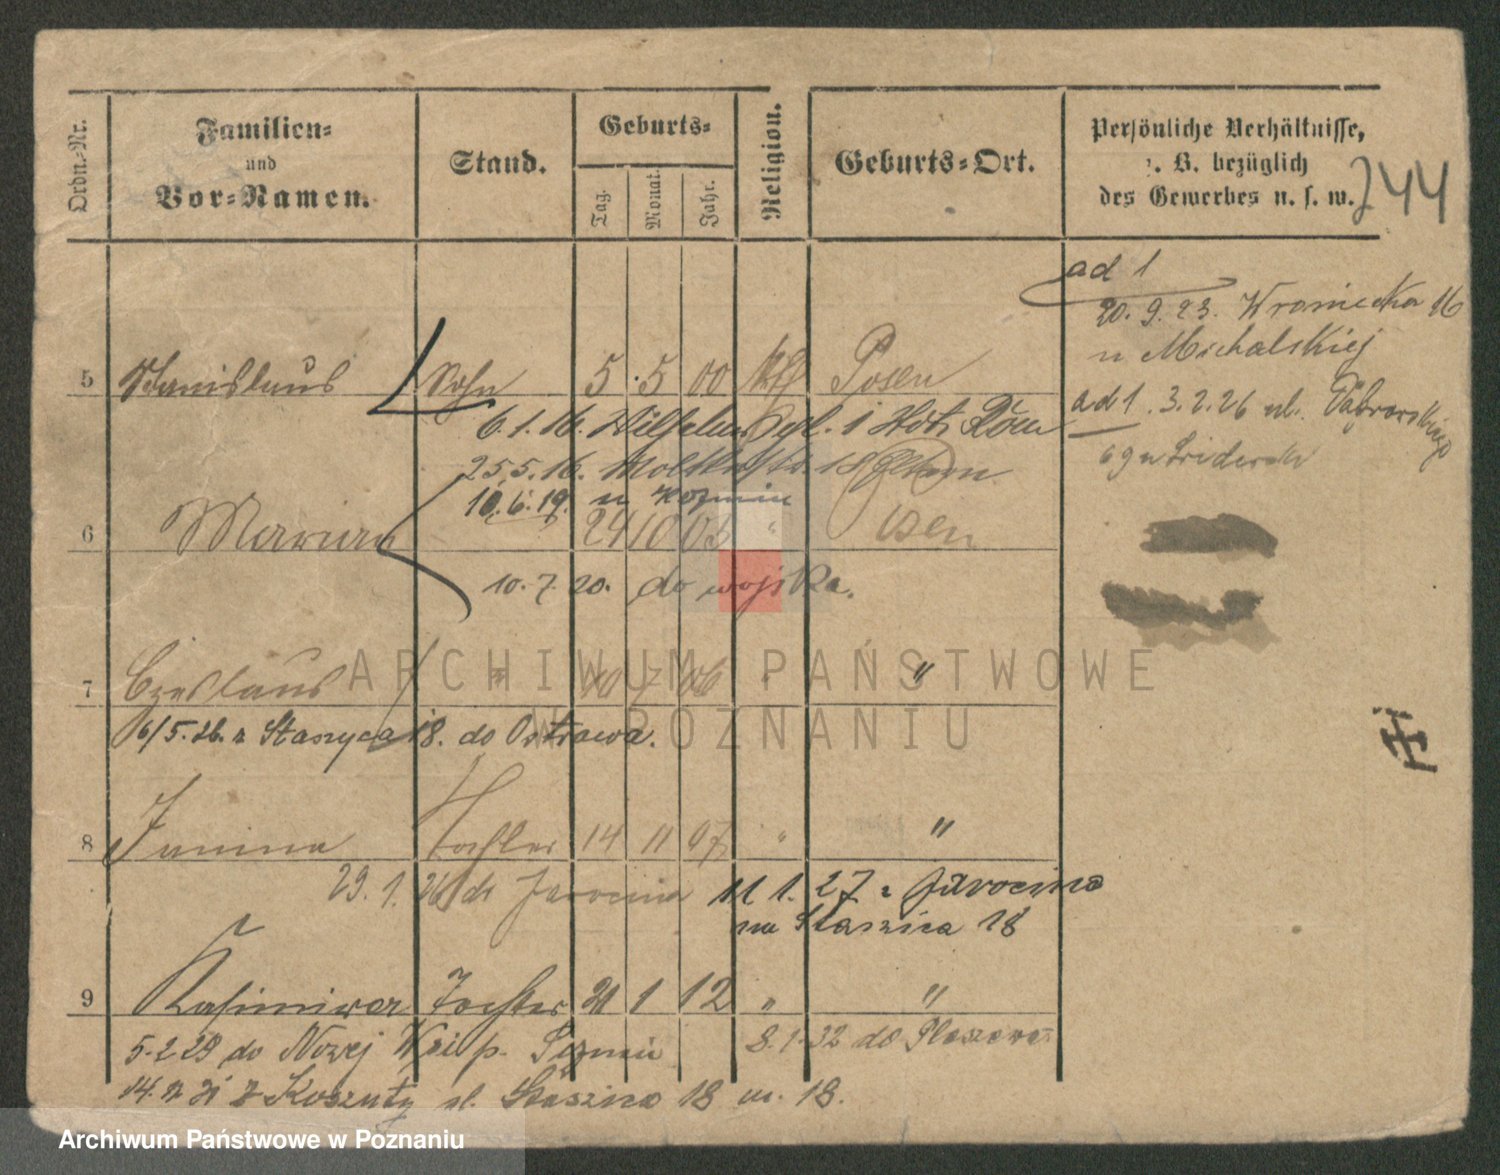 Ordn.-Nr.
Familien-
und
Vor-Namen.
Stand.
Geburts-
Tag.
Monat.
Jahr.
Religion.
Geburts-Ort.
Persönliche Verhältnisse,
z. B. bezüglich
des Gewerbes u. s. w.
244
ad 1
20. 9. 23. Wroniecka 16
u Michalskiej
5 Stanislaus Sohn 5 5 00 Posen
ad 1. 3. 2. 26 ul.
6. 1. 16.
25. 5. 16.
10. 6. 19. u
6 Marian 24 10 03
10. 7. 20. do wojska.
7 Czeslaus " 7 06 " "
16/5. 26. z Staszyca 18. do Ostrowa.
8 Janina Tochter 14 11 07 " "
29. 1. 26 do Jarocina 11. 1. 27 z Jarocina
na Staszica 18
9 Kasimira Tochter 21 1 12 " "
5. 2 29 do Nowej Wsi p. 8. 1. 32 do Pleszewa
14. z Koszuty ul. Staszica 18 m. 18.
ARCHIWUM PAŃSTWOWE
W POZNANIU
Archiwum Państwowe w Poznaniu